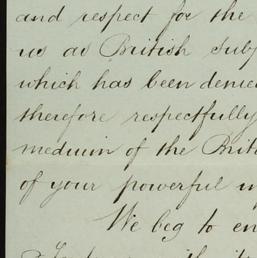 and respect for the
us as British subj
which has been denie
therefore respectfully
medium of the Brit
of your powerful in
We beg to en